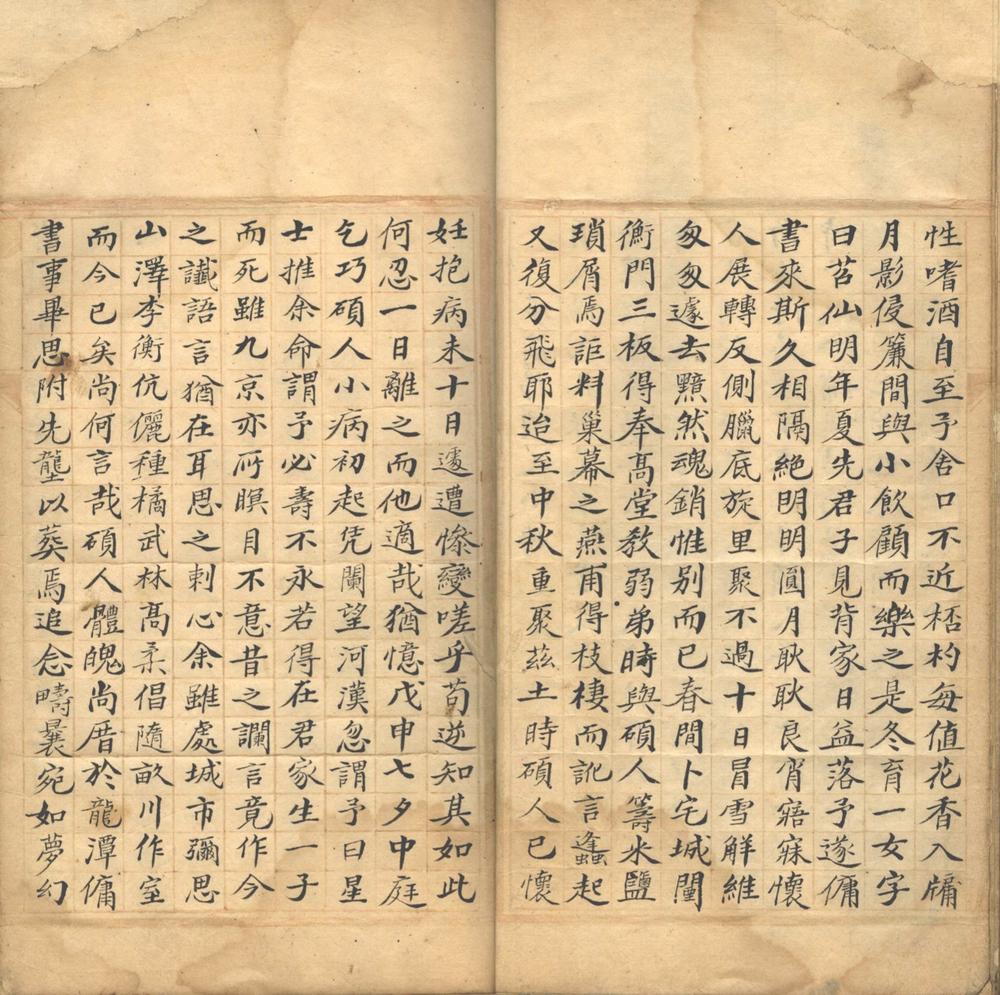 性嗜酒自至予舍口不近桮杓每值花香入牖
月影侵簾間與小飲顧而樂之是冬育一女字
曰苕仙明年夏先君子見背家日益落予遂傭
書來斯久相隔絶明明圓月耿耿良宵寤寐懷
人展轉反側臘底旋里聚不過十日冒雪解維
匆匆遽去黯然魂銷惟别而已春間卜宅城闉
衡門三板得奉髙堂教弱弟時與碩人籌米鹽
瑣屑焉詎料巢幕之燕甫得枝棲而訛言蠭起
又復分飛耶迨至中秋重聚茲土時碩人已懷
妊抱病未十日遽遭慘變嗟乎苟逆知其如此
何忍一日離之而他適哉猶憶戊申七夕中庭
乞巧碩人小病初起凭闌望河漢忽謂予曰星
士推余命謂予必壽不永若得在君家生一子
而死雖九京亦所瞑目不意昔之讕言竟作今
之讖語言猶在耳思之刺心余雖處城市彌思
山澤李衡伉儷種橘武林髙柔倡隨畝川作室
而今已矣尚何言哉碩人體魄尚厝於龍潭傭
書事畢思附先壟以葬焉追念疇曩宛如夢幻